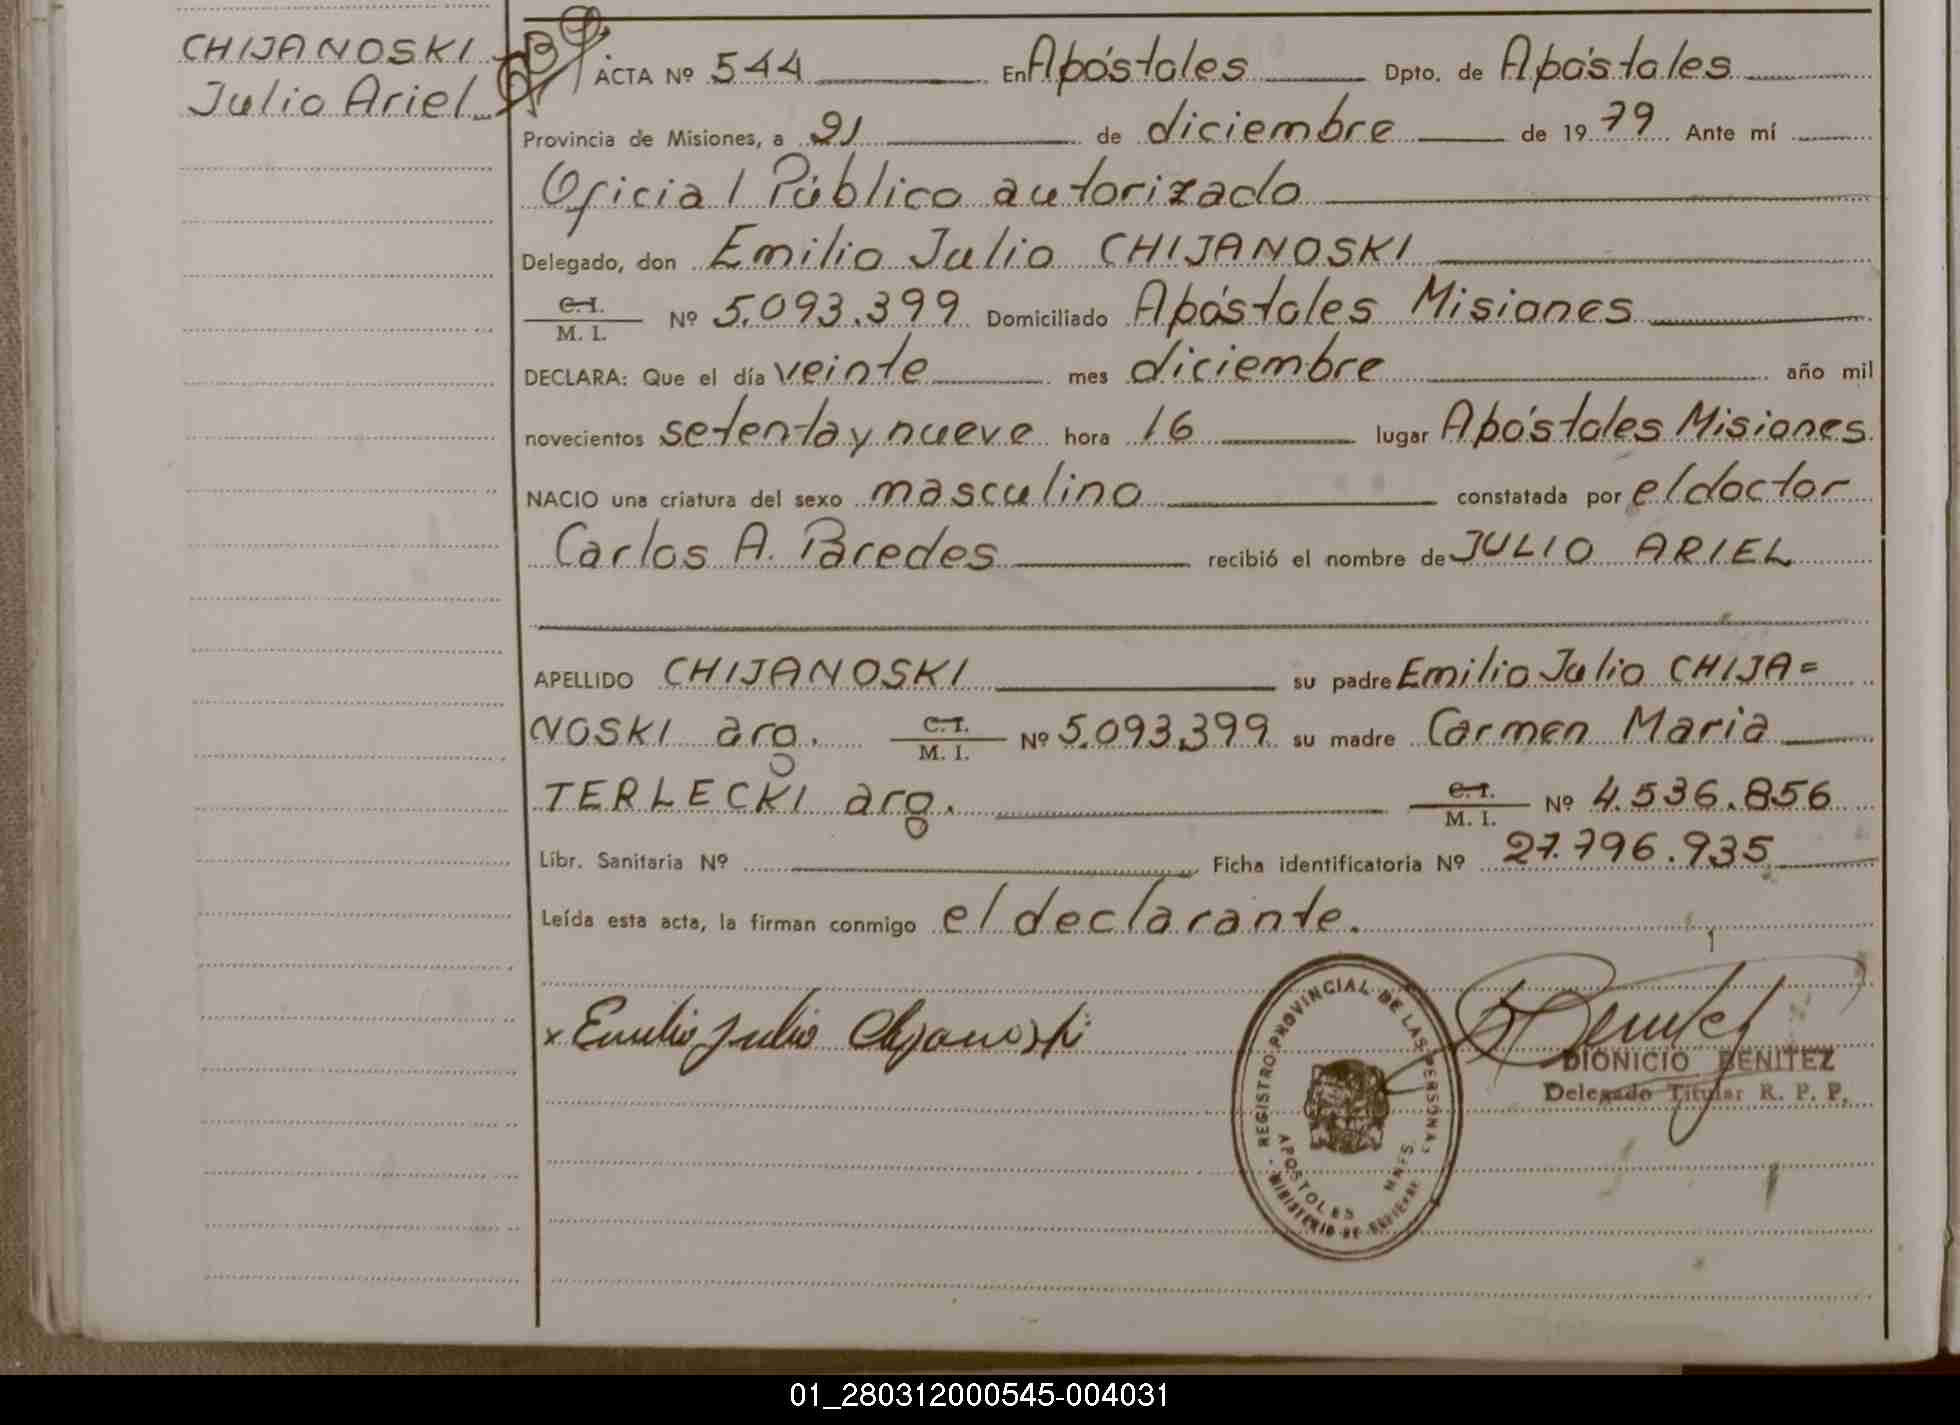 CHIJANOSKI
Julio Ariel
ACTA Nº 544 En Apóstoles Dpto. de Apóstoles
Provincia de Misiones, a 21 de diciembre de 1979 Ante mí
Oficial Público autorizado
Delegado, don Emilio Julio CHIJANOSKI
C. I.
M. I. Nº 5.093.399 Domiciliado Apóstoles Misiones
DECLARA: Que el día veinte mes diciembre año mil
novecientos setenta y nueve hora 16 lugar Apóstoles Misiones
NACIO una criatura del sexo masculino constatada por el doctor
Carlos A. Paredes recibió el nombre de JULIO ARIEL
APELLIDO CHIJANOSKI su padre Emilio Julio CHIJA=
NOSKI arg. C. I. M. I. Nº 5.093.399 su madre Carmen Maria
TERLECKI arg. C. I. M. I. Nº 4.536.856
Libr. Sanitaria Nº Ficha identificatoria Nº 27.796.935
Leída esta acta, la firman conmigo el declarante.
x Emilio Julio Chijanoski
REGISTRO PROVINCIAL DE LAS PERSONAS
APOSTOLES MNES.
MINISTERIO DE GOBIERNO
DIONICIO BENITEZ
Delegado Titular R. P. P.
01_280312000545-004031